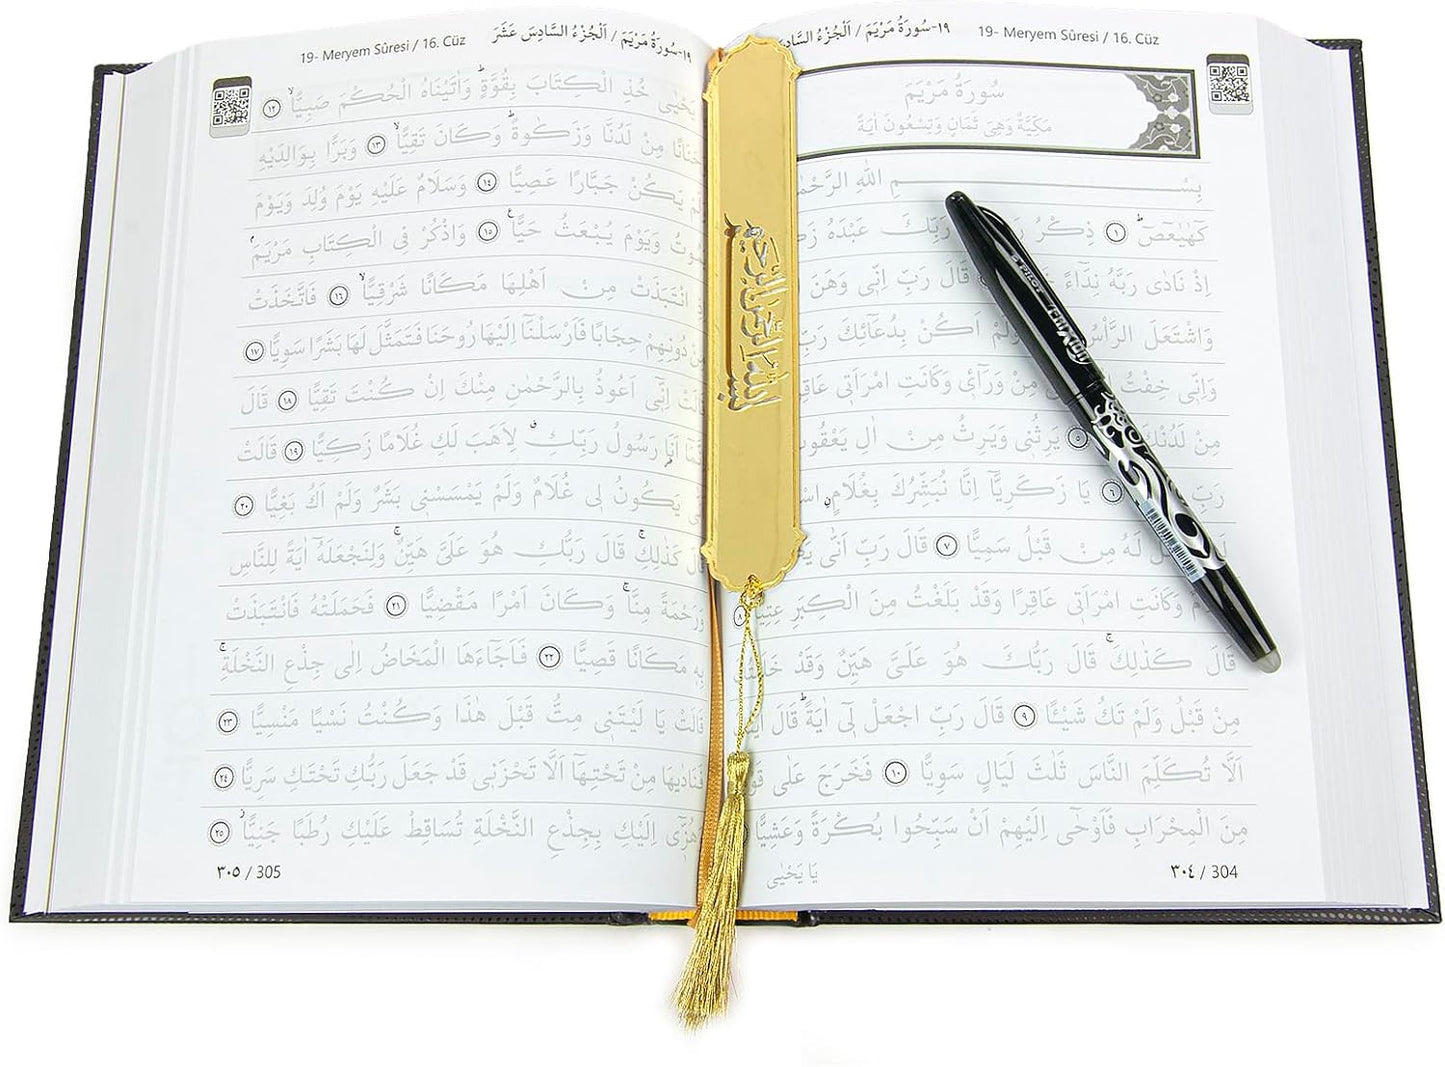 19- Meryem Sûresi / 16. Cüz
١٩-سُورَةُ مَرْيَمَ / اَلْجُزْءُ السَّادِ
سُورَةُ مَرْيَمَ
مَكِّيَّةٌ وَهِيَ ثَمَانٍ وَتِسْعُونَ اٰيَةً
بِسْمِ اللّٰهِ الرَّحْمٰ
كٓهٰيٰعٓصٓ ﴿١﴾ ذِكْرُ رَبِّكَ عَبْدَهُ زَكَ
اِذْ نَادٰى رَبَّهُ نِدَٓاءً قَالَ رَبِّ اِنّ۪ى وَهَنَ
وَاشْتَعَلَ الرَّأْسُ وَلَمْ اَكُنْ بِدُعَٓائِكَ رَبِّ
وَاِنّ۪ى خِفْتُ مِنْ وَرَٓاء۪ى وَكَانَتِ امْرَاَت۪ى عَاقِ
مِنْ لَدُنْكَ ﴿٥﴾ يَرِثُن۪ى وَيَرِثُ مِنْ اٰلِ يَعْقُو
رَبِّ ﴿٦﴾ يَا زَكَرِيَّٓا اِنَّا نُبَشِّرُكَ بِغُلَامٍ اسْ
لَهُ مِنْ قَبْلُ سَمِيًّا ﴿٧﴾ قَالَ رَبِّ اَنّٰى يَ
وَكَانَتِ امْرَاَت۪ى عَاقِرًا وَقَدْ بَلَغْتُ مِنَ الْكِبَرِ عِتِيًّا ﴿٨﴾
قَالَ كَذٰلِكَۚ قَالَ رَبُّكَ هُوَ عَلَىَّ هَيِّنٌ وَقَدْ خَلَقْتُ
مِنْ قَبْلُ وَلَمْ تَكُ شَيْـًٔا ﴿٩﴾ قَالَ رَبِّ اجْعَلْ ل۪ٓى اٰيَةًۜ قَالَ اٰيَ
اَلَّا تُكَلِّمَ النَّاسَ ثَلٰثَ لَيَالٍ سَوِيًّا ﴿١٠﴾ فَخَرَجَ عَلٰى قَوْ
مِنَ الْمِحْرَابِ فَاَوْحٰٓى اِلَيْهِمْ اَنْ سَبِّحُوا بُكْرَةً وَعَشِيًّا
يَا يَحْيٰى
٣٠٤ / 304
19- Meryem Sûresi / 16. Cüz
١٩-سُورَةُ مَرْيَمَ / اَلْجُزْءُ السَّادِسَ عَشَرَ
يَحْيٰى خُذِ الْكِتَابَ بِقُوَّةٍۜ وَاٰتَيْنَاهُ الْحُكْمَ صَبِيًّاۙ ﴿١٢﴾
حَنَانًا مِنْ لَدُنَّا وَزَكٰوةًۜ وَكَانَ تَقِيًّاۙ ﴿١٣﴾ وَبَرًّا بِوَالِدَيْهِ
يَكُنْ جَبَّارًا عَصِيًّا ﴿١٤﴾ وَسَلَامٌ عَلَيْهِ يَوْمَ وُلِدَ وَيَوْمَ
مُوتُ وَيَوْمَ يُبْعَثُ حَيًّا۟ ﴿١٥﴾ وَاذْكُرْ فِى الْكِتَابِ مَرْيَمَۢ
انْتَبَذَتْ مِنْ اَهْلِهَا مَكَانًا شَرْقِيًّاۙ ﴿١٦﴾ فَاتَّخَذَتْ
مِنْ دُونِهِمْ حِجَابًا فَاَرْسَلْنَٓا اِلَيْهَا رُوحَنَا فَتَمَثَّلَ لَهَا بَشَرًا سَوِيًّا ﴿١٧﴾
قَالَتْ اِنّ۪ٓى اَعُوذُ بِالرَّحْمٰنِ مِنْكَ اِنْ كُنْتَ تَقِيًّا ﴿١٨﴾ قَالَ
اَنَا رَسُولُ رَبِّكِۗ لِاَهَبَ لَكِ غُلَامًا زَكِيًّا ﴿١٩﴾ قَالَتْ
يَكُونُ ل۪ى غُلَامٌ وَلَمْ يَمْسَسْن۪ى بَشَرٌ وَلَمْ اَكُ بَغِيًّا ﴿٢٠﴾
كَذٰلِكِۚ قَالَ رَبُّكِ هُوَ عَلَىَّ هَيِّنٌۚ وَلِنَجْعَلَهُٓ اٰيَةً لِلنَّاسِ
وَرَحْمَةً مِنَّاۚ وَكَانَ اَمْرًا مَقْضِيًّا ﴿٢١﴾ فَحَمَلَتْهُ فَانْتَبَذَتْ
بِه۪ مَكَانًا قَصِيًّا ﴿٢٢﴾ فَاَجَٓاءَهَا الْمَخَاضُ اِلٰى جِذْعِ النَّخْلَةِۚ
قَالَتْ يَا لَيْتَن۪ى مِتُّ قَبْلَ هٰذَا وَكُنْتُ نَسْيًا مَنْسِيًّا ﴿٢٣﴾
فَنَادٰيهَا مِنْ تَحْتِهَٓا اَلَّا تَحْزَن۪ى قَدْ جَعَلَ رَبُّكِ تَحْتَكِ سَرِيًّا ﴿٢٤﴾
وَهُزّ۪ٓى اِلَيْكِ بِجِذْعِ النَّخْلَةِ تُسَاقِطْ عَلَيْكِ رُطَبًا جَنِيًّاۘ ﴿٢٥﴾
٣٠٥ / 305
بسم الله الرحمن الرحيم
PILOT FRIXION